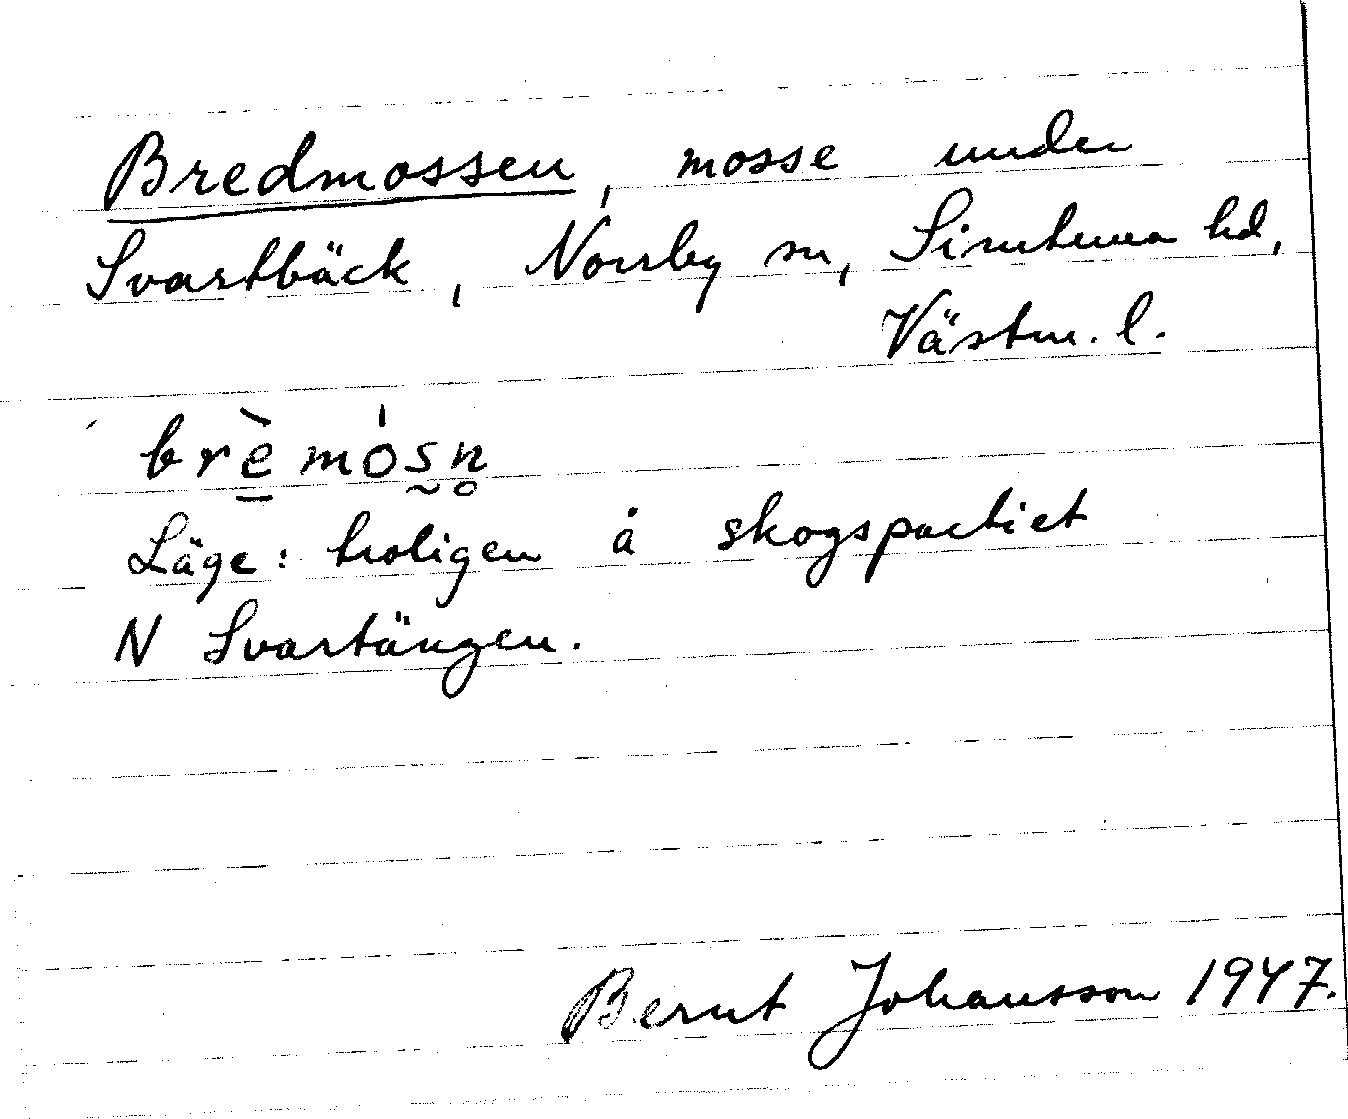 Bredmossen, mosse under
Svartbäck, Norrby sn, Simtuna hd,
Västm. l.
brèmósn̥
Läge: troligen å skogspartiet
N Svartängen.
Bernt Johansson 1947.